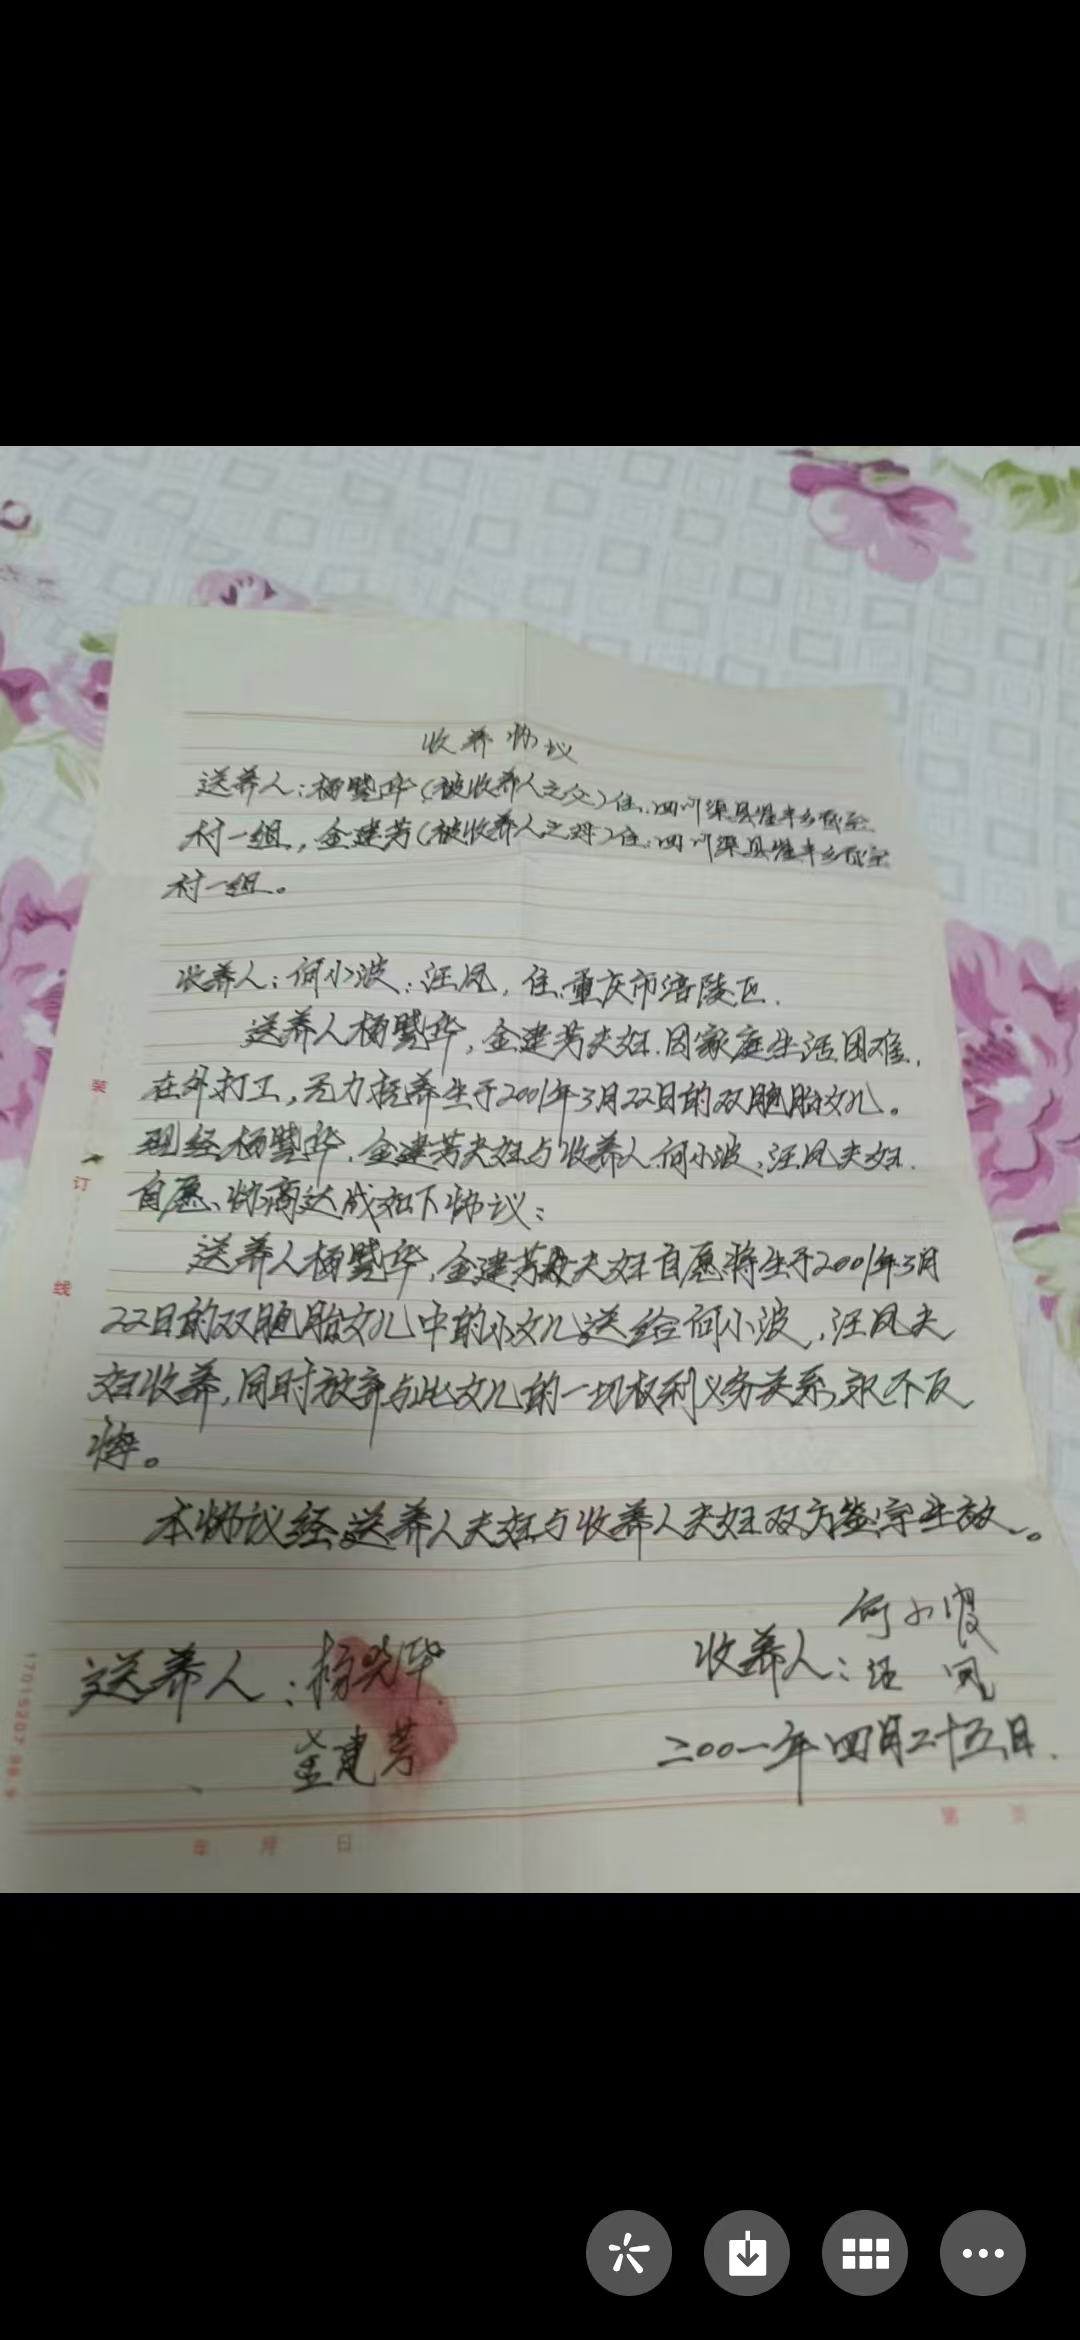 收养协议
送养人：杨晓华（被收养人之父）住：四川渠县
村一组，金建芳（被收养人之母）住：四川渠县
村一组。
收养人：何小波；汪凤，住：重庆市涪陵区.
送养人杨晓华，金建芳夫妇.因家庭生活困难，
在外打工，无力抚养生于2001年3月22日的双胞胎女儿。
现经杨晓华，金建芳夫妇与收养人何小波、汪凤夫妇.
自愿、协商达成如下协议：
送养人杨晓华，金建芳夫妇自愿将生于2001年3月
22日的双胞胎女儿中的小女儿送给何小波，汪凤夫
妇收养，同时放弃与此女儿的一切权利义务关系，永不反
悔。
本协议经送养人夫妇与收养人夫妇双方签字生效。
何小波
送养人：杨晓华 收养人：汪凤
金建芳 二00一年四月二十五日.
装
订
线
年 月 日
第 页